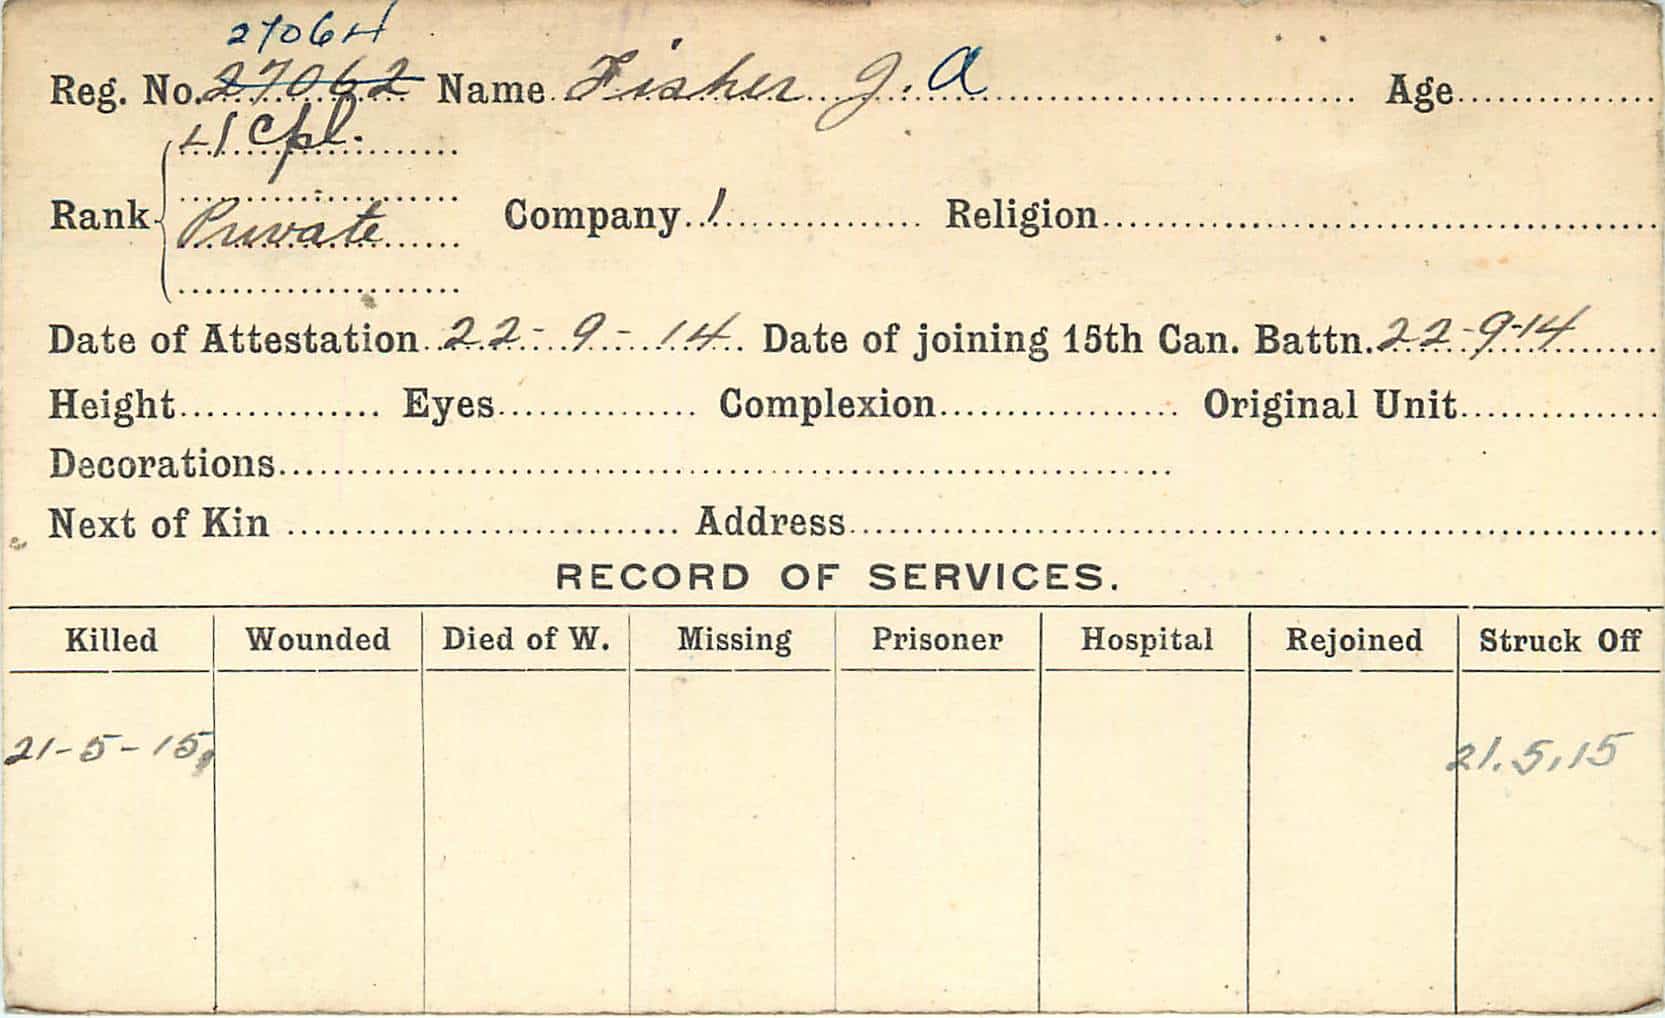 27064
Reg. No. 27062 Name Fisher J. A Age
L/Cpl.
Rank Private Company 1 Religion
Date of Attestation 22-9-14 Date of joining 15th Can. Battn. 22-9-14
Height Eyes Complexion Original Unit
Decorations
Next of Kin Address
RECORD OF SERVICES.
Killed Wounded Died of W. Missing Prisoner Hospital Rejoined Struck Off
21-5-15 21.5.15